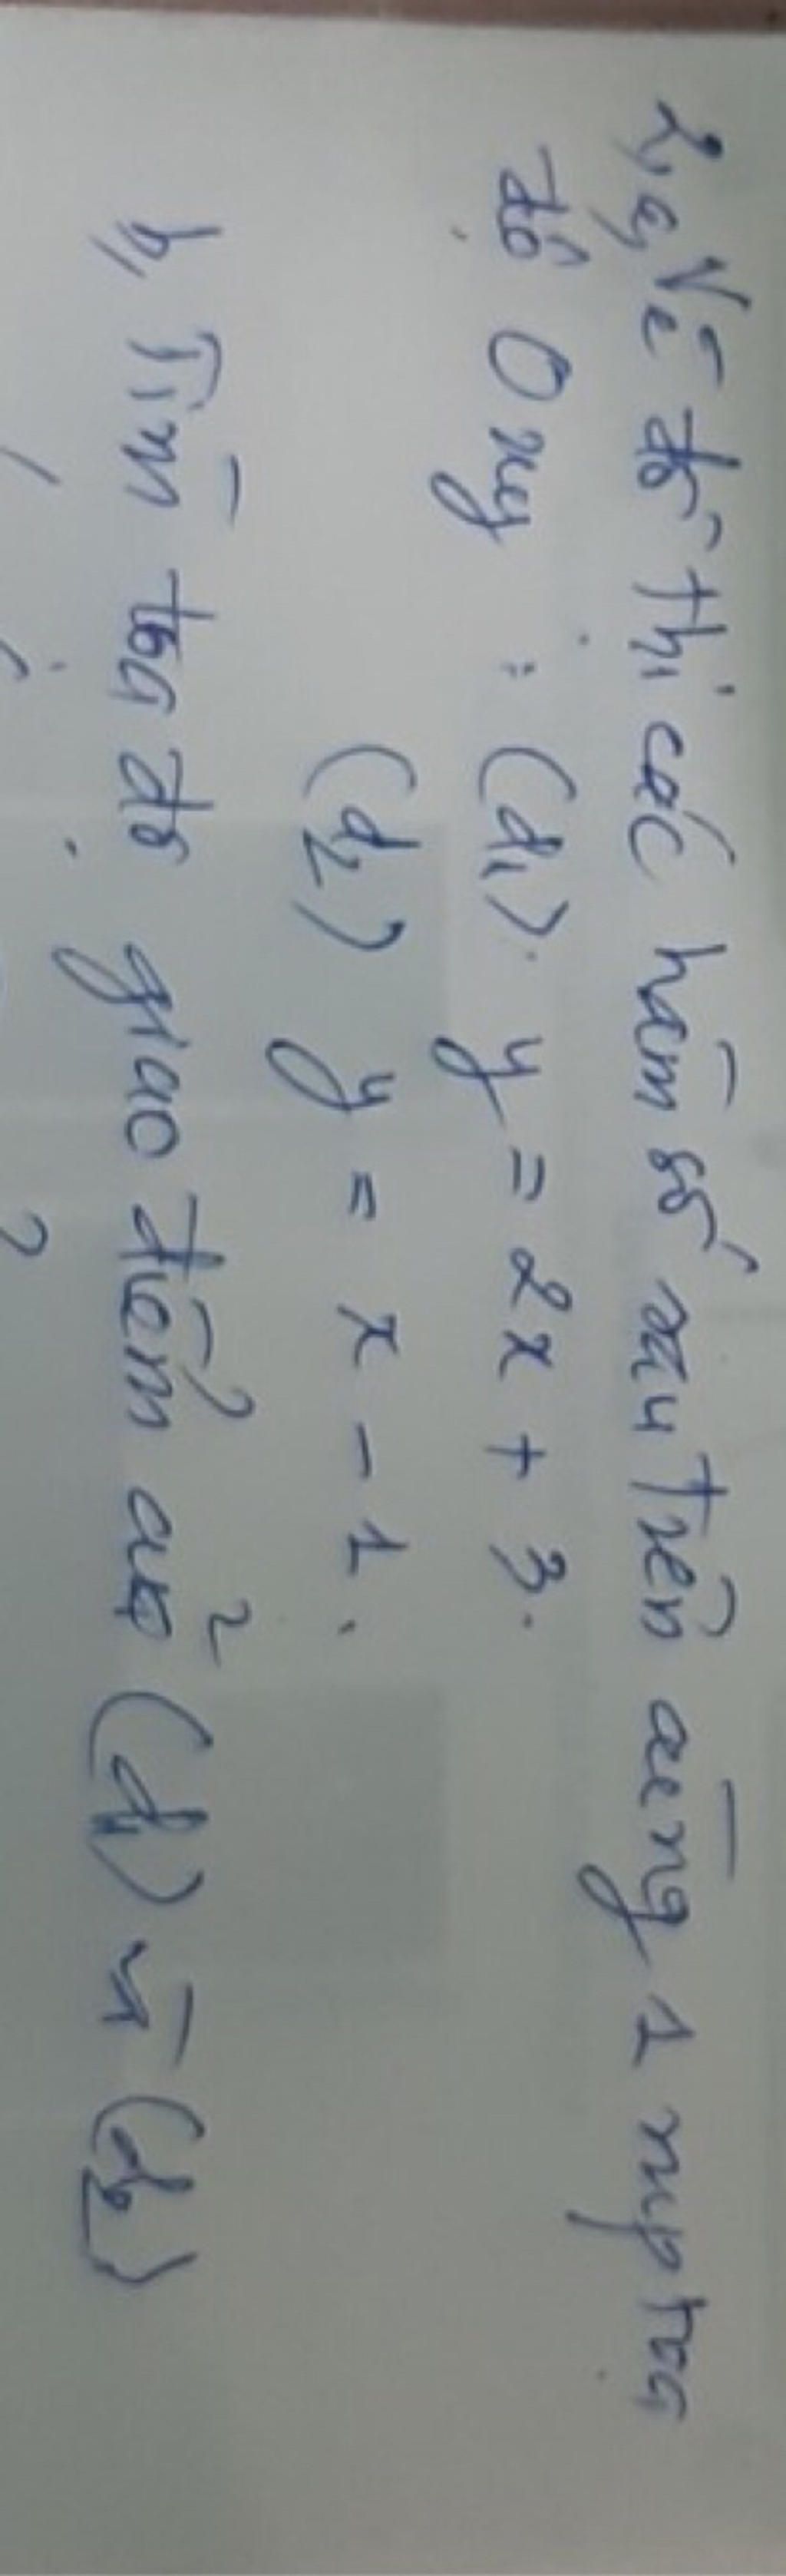 2, a, Vẽ đồ thị các hàm số sau trên cùng 1 mp toạ
độ Oxy : (d₁). y = 2x + 3.
(d₂) y = x - 1.
b, Tìm toạ độ giao điểm của (d₁) và (d₂)